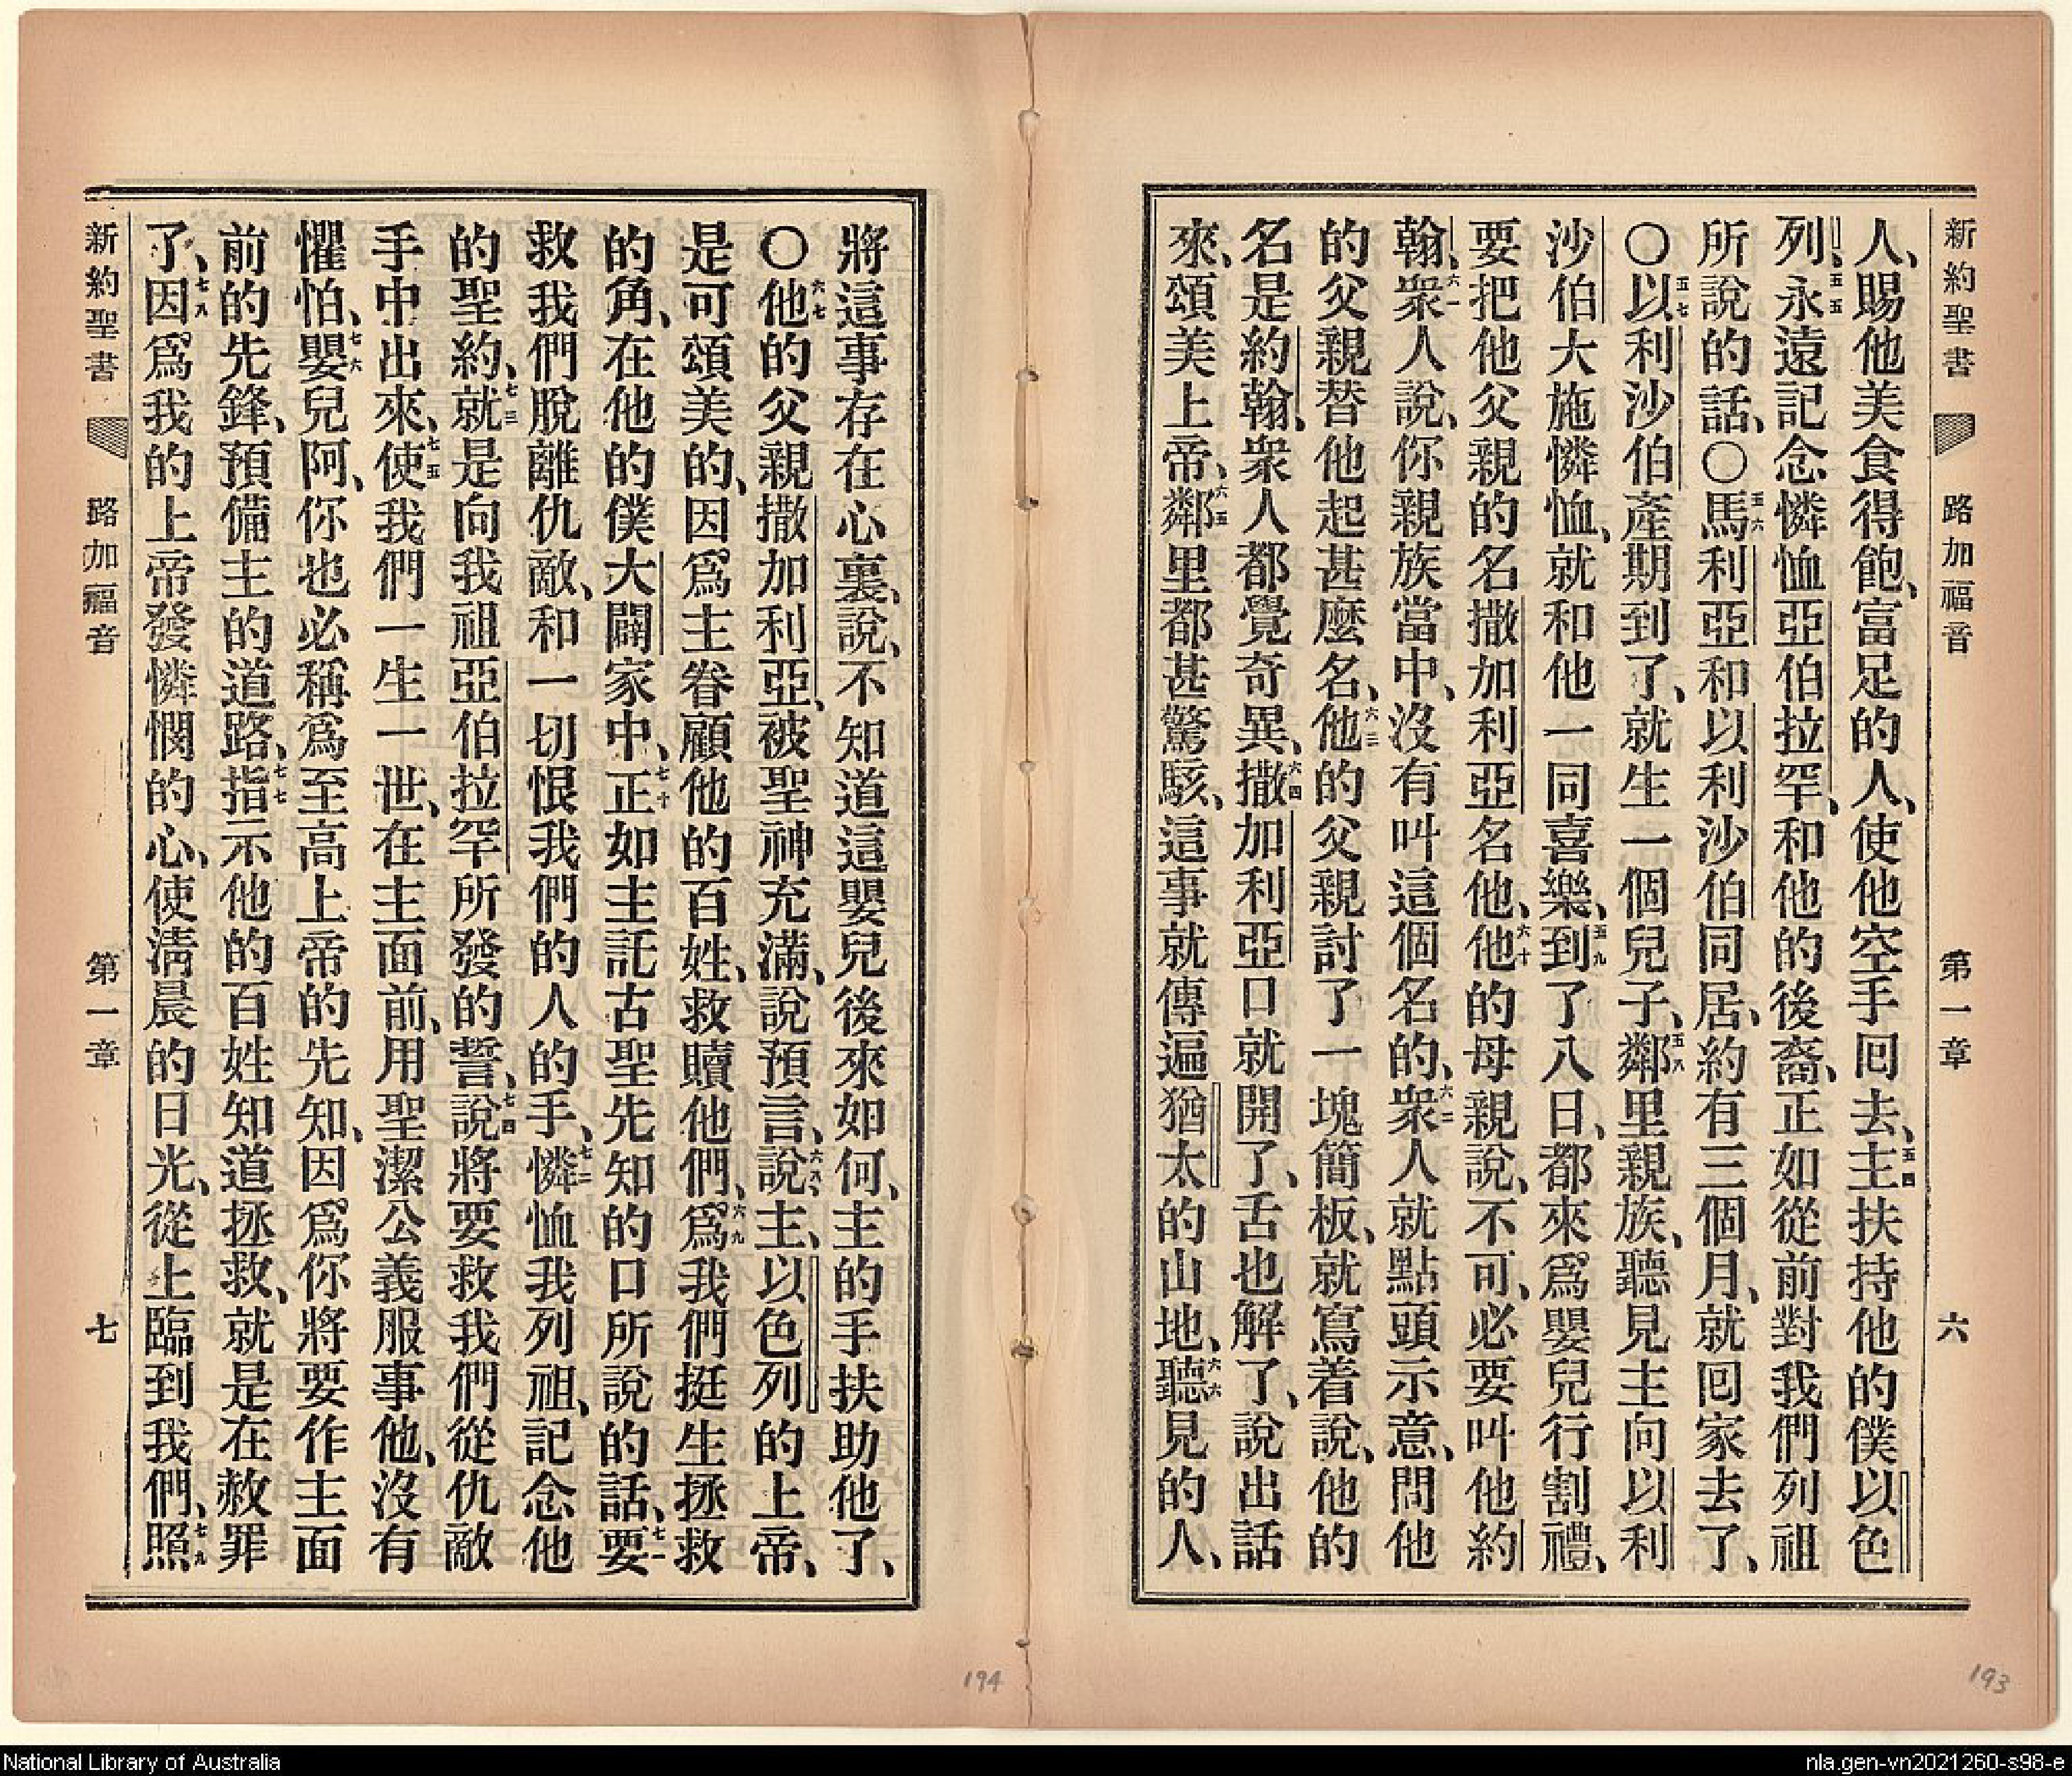 新約聖書 路加福音 第一章 六
人、賜他美食得飽、富足的人、使他空手回去、五四主扶持他的僕以色
列、五五永遠記念憐恤亞伯拉罕、和他的後裔、正如從前對我們列祖
所說的話、〇五六馬利亞和以利沙伯同居、約有三個月、就回家去了、
〇五七以利沙伯產期到了、就生一個兒子、五八鄰里親族、聽見主向以利
沙伯大施憐恤、就和他一同喜樂、五九到了八日、都來爲嬰兒行割禮、
要把他父親的名撒加利亞名他、六十他的母親說、不可、必要叫他約
翰、六一衆人說、你親族當中、沒有叫這個名的、六二衆人就點頭示意、問他
的父親替他起甚麼名、六三他的父親討了一塊簡板、就寫着說、他的
名是約翰、衆人都覺奇異、六四撒加利亞口就開了、舌也解了、說出話
來、頌美上帝、六五鄰里都甚驚駭、這事就傳遍猶太的山地、六六聽見的人、
將這事存在心裏、說、不知道這嬰兒後來如何、主的手扶助他了、
〇六七他的父親撒加利亞、被聖神充滿、說預言、六八說、主、以色列的上帝、
是可頌美的、因爲主眷顧他的百姓、救贖他們、六九爲我們挺生拯救
的角、在他的僕大闢家中、七十正如主託古聖先知的口所說的話、七一要
救我們脫離仇敵、和一切恨我們的人的手、七二憐恤我列祖、記念他
的聖約、七三就是向我祖亞伯拉罕所發的誓、七四說將要救我們從仇敵
手中出來、七五使我們一生一世、在主面前、用聖潔公義服事他、沒有
懼怕、七六嬰兒阿、你也必稱爲至高上帝的先知、因爲你將要作主面
前的先鋒、預備主的道路、七七指示他的百姓知道拯救、就是在赦罪
了、七八因爲我的上帝發憐憫的心、使淸晨的日光、從上臨到我們、七九照
新約聖書 路加福音 第一章 七
193
194
National Library of Australia
nla.gen-vn2021260-s98-e